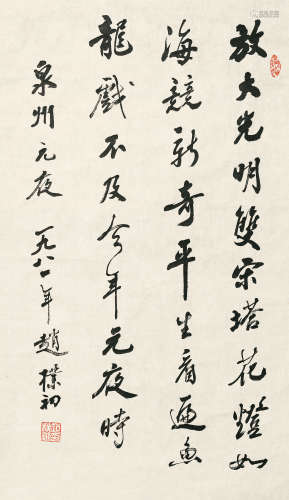 放大光明雙宋塔花燈如
海競新奇平生看遍魚
龍戲不及今年元夜時
泉州元夜 一九八一年趙樸初